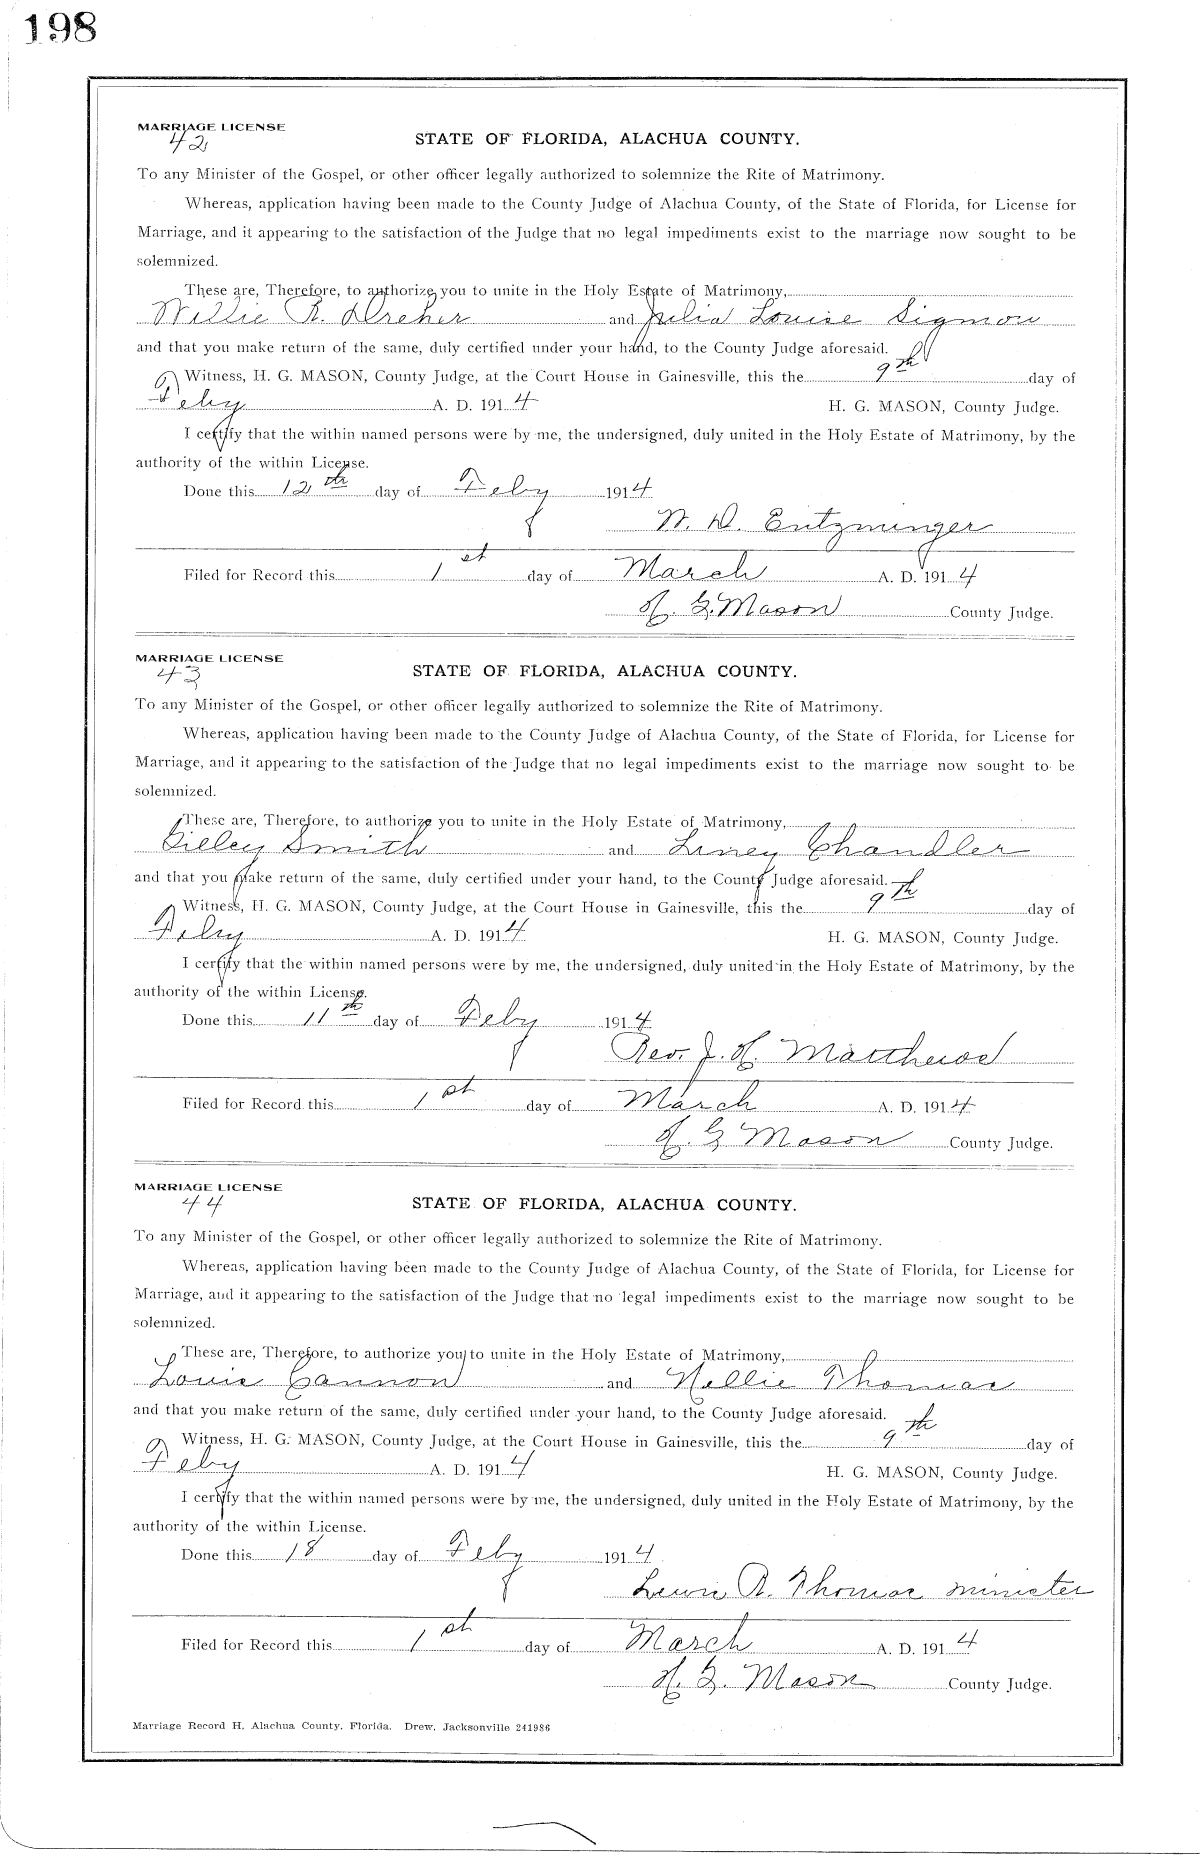 198
MARRIAGE LICENSE
42
STATE OF FLORIDA, ALACHUA COUNTY.
To any Minister of the Gospel, or other officer legally authorized to solemnize the Rite of Matrimony.
Whereas, application having been made to the County Judge of Alachua County, of the State of Florida, for License for
Marriage, and it appearing to the satisfaction of the Judge that no legal impediments exist to the marriage now sought to be
solemnized.
These are, Therefore, to authorize you to unite in the Holy Estate of Matrimony,
Willie R. Dreher and Julia Louise Sigmon
and that you make return of the same, duly certified under your hand, to the County Judge aforesaid.
Witness, H. G. MASON, County Judge, at the Court House in Gainesville, this the 9th day of
Feby A. D. 1914 H. G. MASON, County Judge.
I certify that the within named persons were by me, the undersigned, duly united in the Holy Estate of Matrimony, by the
authority of the within License.
Done this 12th day of Feby 1914
W. D. Entzminger
Filed for Record this 1st day of March A. D. 1914
H. G. Mason County Judge.
MARRIAGE LICENSE
43
STATE OF FLORIDA, ALACHUA COUNTY.
To any Minister of the Gospel, or other officer legally authorized to solemnize the Rite of Matrimony.
Whereas, application having been made to the County Judge of Alachua County, of the State of Florida, for License for
Marriage, and it appearing to the satisfaction of the Judge that no legal impediments exist to the marriage now sought to be
solemnized.
These are, Therefore, to authorize you to unite in the Holy Estate of Matrimony,
Smith and Liney Chandler
and that you make return of the same, duly certified under your hand, to the County Judge aforesaid.
Witness, H. G. MASON, County Judge, at the Court House in Gainesville, this the 9th day of
Feby A. D. 1914 H. G. MASON, County Judge.
I certify that the within named persons were by me, the undersigned, duly united in the Holy Estate of Matrimony, by the
authority of the within License.
Done this 11th day of Feby 1914
Rev. J. H. Matthews
Filed for Record this 1st day of March A. D. 1914
H. G Mason County Judge.
MARRIAGE LICENSE
44
STATE OF FLORIDA, ALACHUA COUNTY.
To any Minister of the Gospel, or other officer legally authorized to solemnize the Rite of Matrimony.
Whereas, application having been made to the County Judge of Alachua County, of the State of Florida, for License for
Marriage, and it appearing to the satisfaction of the Judge that no legal impediments exist to the marriage now sought to be
solemnized.
These are, Therefore, to authorize you to unite in the Holy Estate of Matrimony,
Louis Cannon and Nellie Thomas
and that you make return of the same, duly certified under your hand, to the County Judge aforesaid.
Witness, H. G. MASON, County Judge, at the Court House in Gainesville, this the 9th day of
Feby A. D. 1914 H. G. MASON, County Judge.
I certify that the within named persons were by me, the undersigned, duly united in the Holy Estate of Matrimony, by the
authority of the within License.
Done this 18 day of Feby 1914
Lewis R. Thomas minister
Filed for Record this 1st day of March A. D. 1914
H. G. Mason County Judge.
Marriage Record H, Alachua County, Florida. Drew, Jacksonville 241986